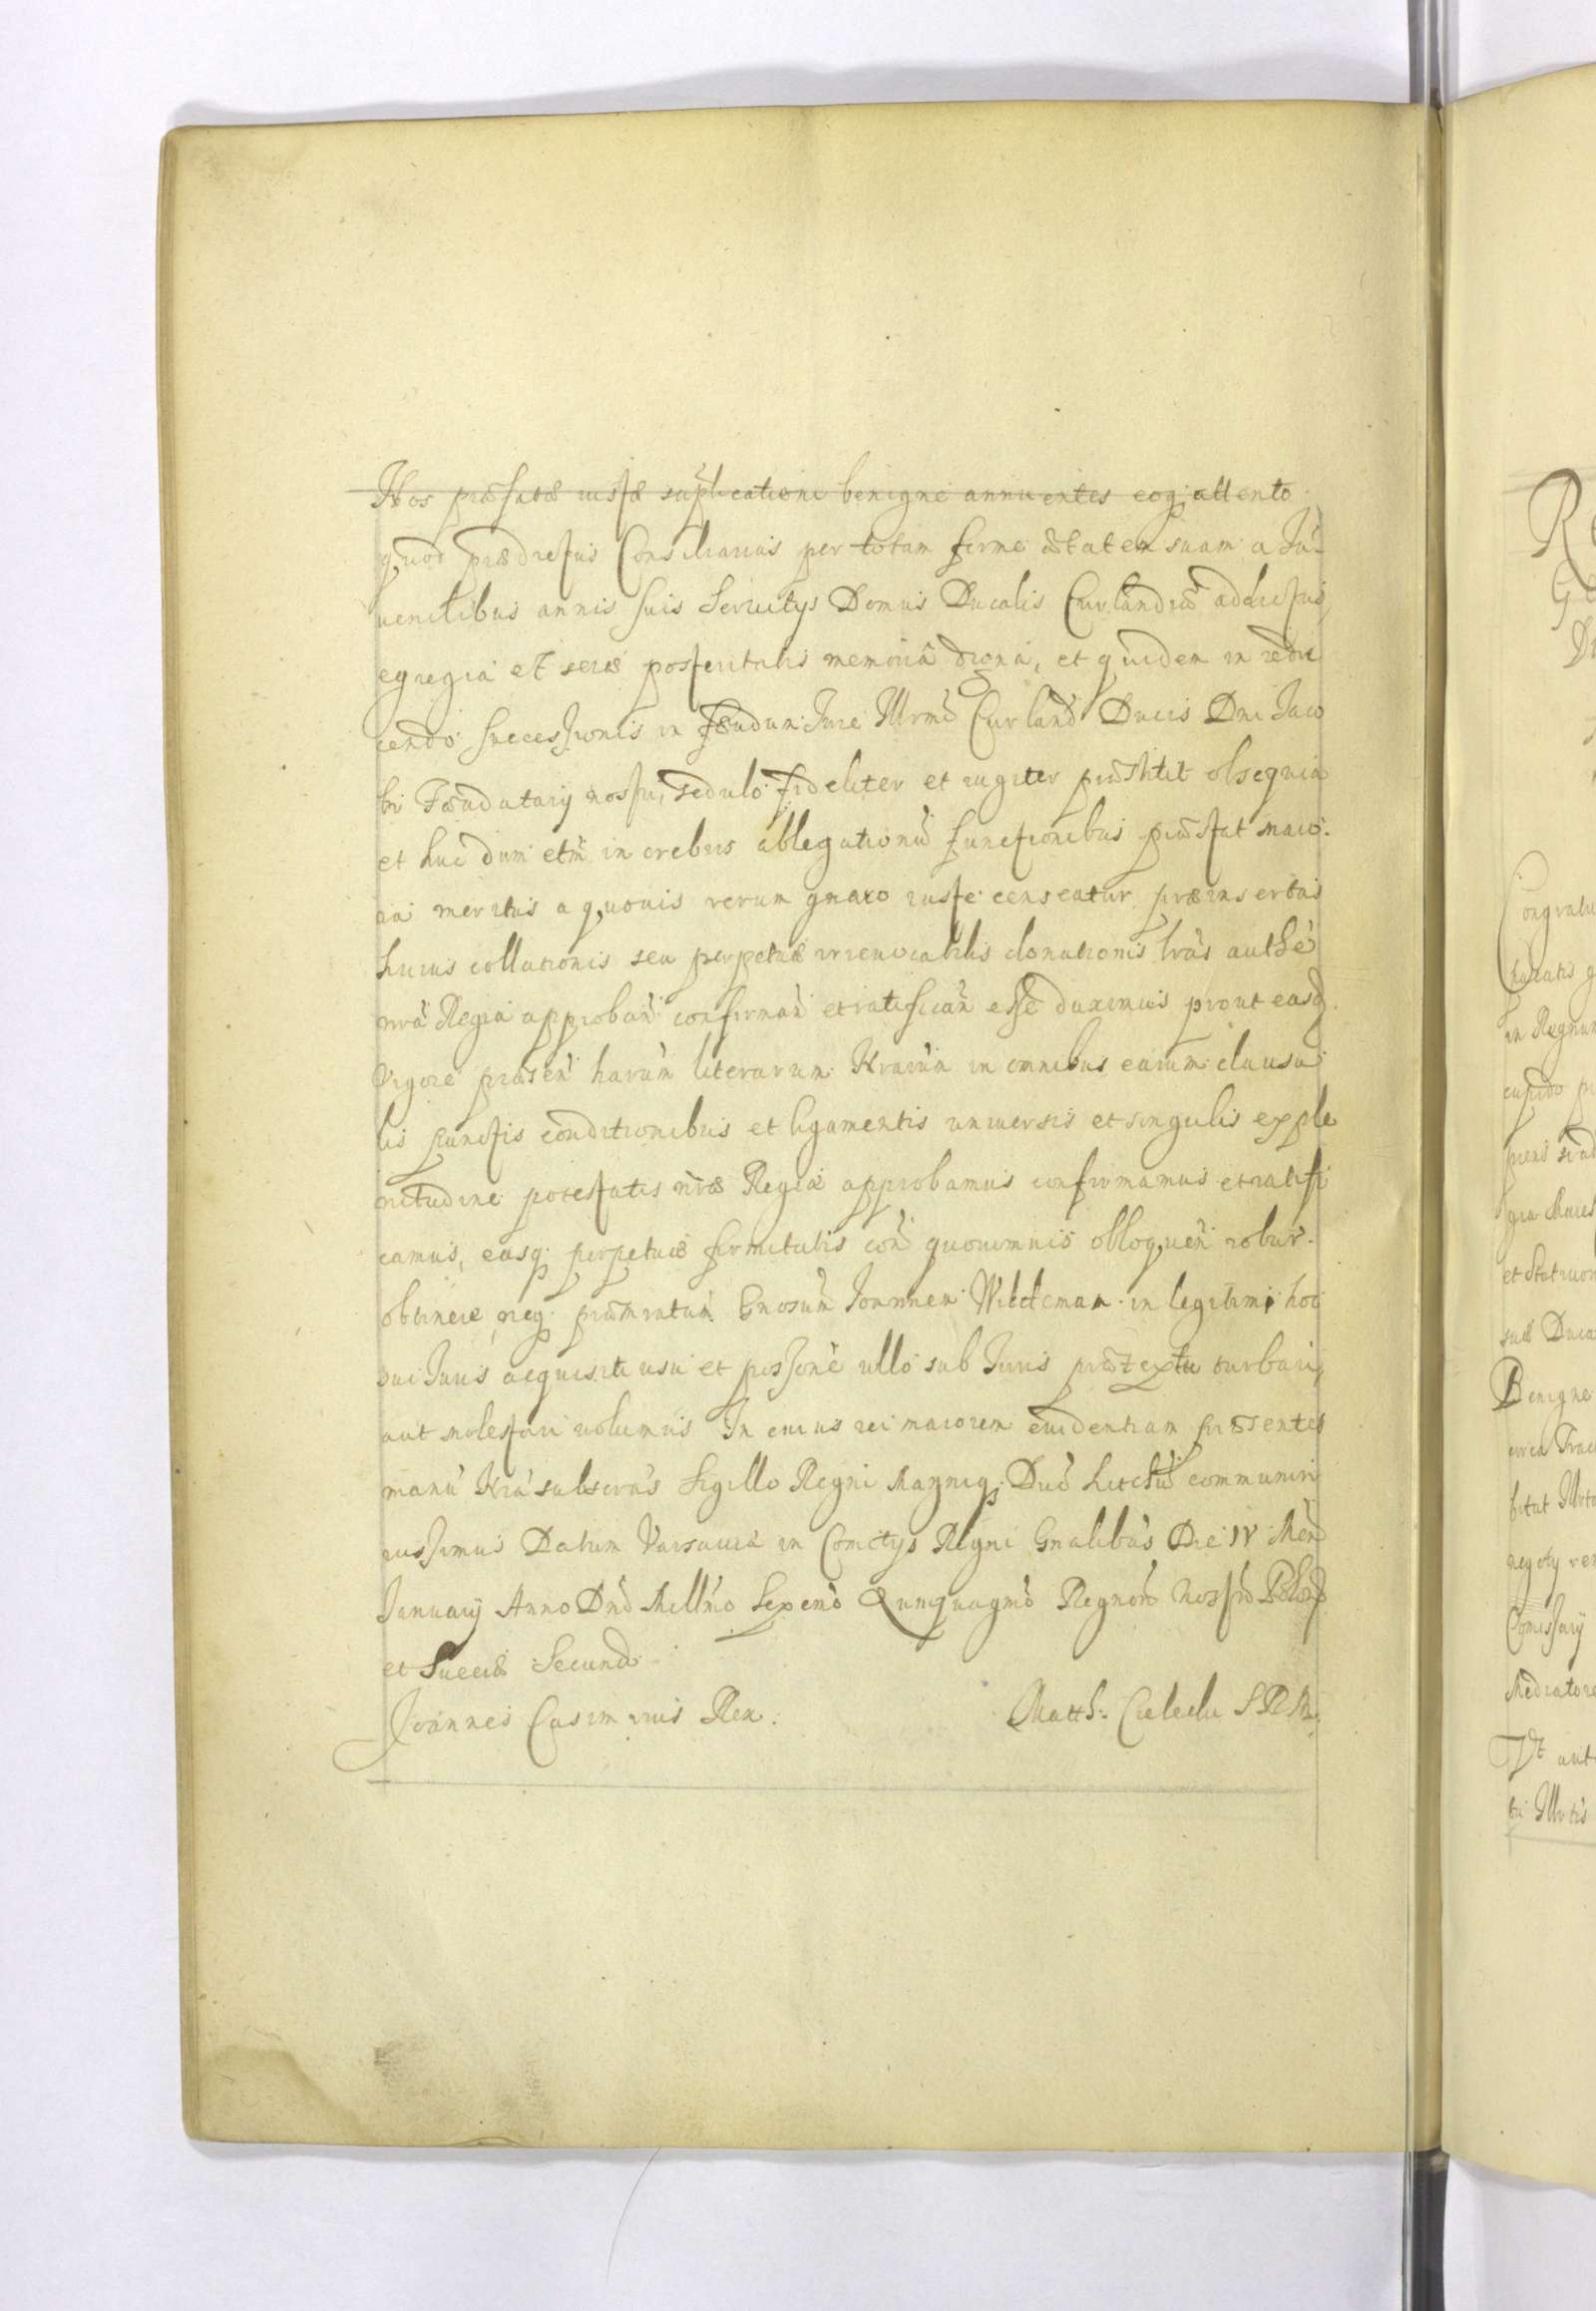 Nos præfatæ iustæ suplicationi benigne annuentes eoq; attento
quod prædictus Consiliarius per totam ferme ætatem suam a Ju-
venilibus annis suis Servitys Domus Ducalis Curlandiæ addictus,
egregiâ et seræ posteritatis memoriâ digna, et quidem in redu
cendo successionis in fœudum Jure Illrmi Curland Ducis Dni Jaco
bi Fœudatarij nostri, sedulo fideliter et iugiter præstitit obsequia
et huc dum etm in crebris ablegationū functionibus præstat maio
ra meritus a quovis rerum gnaro iuste censeatur præinsertas
huius collationis seu perpetuæ irrevocabilis donationis lrās authē
nrā Regiâ approbañ confirmañ et ratificañ esse duximus prout easq
vigore præseñ harum literarum Nrarum in omnibus earum clausu
lis punctis conditionibus et ligamentis universis et singulis ex ple
nitudine potestatis nrǣ Regiæ approbamus confirmamus et ratifi
camus, easq; perpetuæ firmitatis con quorumvis obloqueñ robur
obtinere, neq; præmiratum Gnosum Joannem Wildeman in legitimi hoc
sui Juris acquisiti usu et possione ullo sub Juris prætextu turbari,
aut molestari volumus In cuius rei maiorem evidentiam præsentes
manu Nrâ subscrās Sigillo Regni Magniq; Duc Litthū communiri
iussimus Datum Varsaviæ in Comitys Regni Gnalibus Die IV Mens
January Anno Dni Millmo Sexcmo Qunquagmo Regnorū Nostrū Polon
et Sueciæ Secund
Joannes Casimirus Rex. Matth: Cielecki S R M.
R
G
D
Congratu
in Regnum
cupido
gia
et Statuon
suæ Duca
Benigne
circa Trac
bitat Illrt
negoty re
Comissary
Mediatore
Vt aut
Illrtis